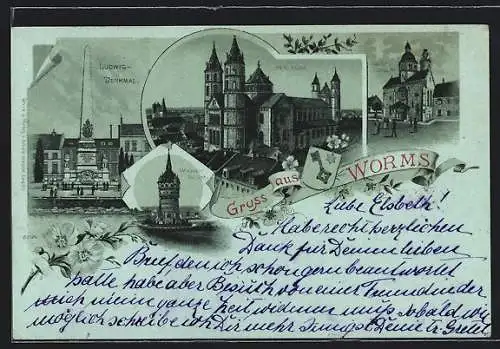 LUDWIG-
DENKMAL.
Gruss aus WORMS
Liebe Elsbeth!
Habe recht herzlichen
Dank für Deinen lieben
Brief den ich schon gern beantwortet
hatte habe aber Besuch von einer Freundin der
mich meine ganze Zeit widmen muß sobald wie
möglich schreibe ich Dir mehr Innigst Deine Tr. Gretel